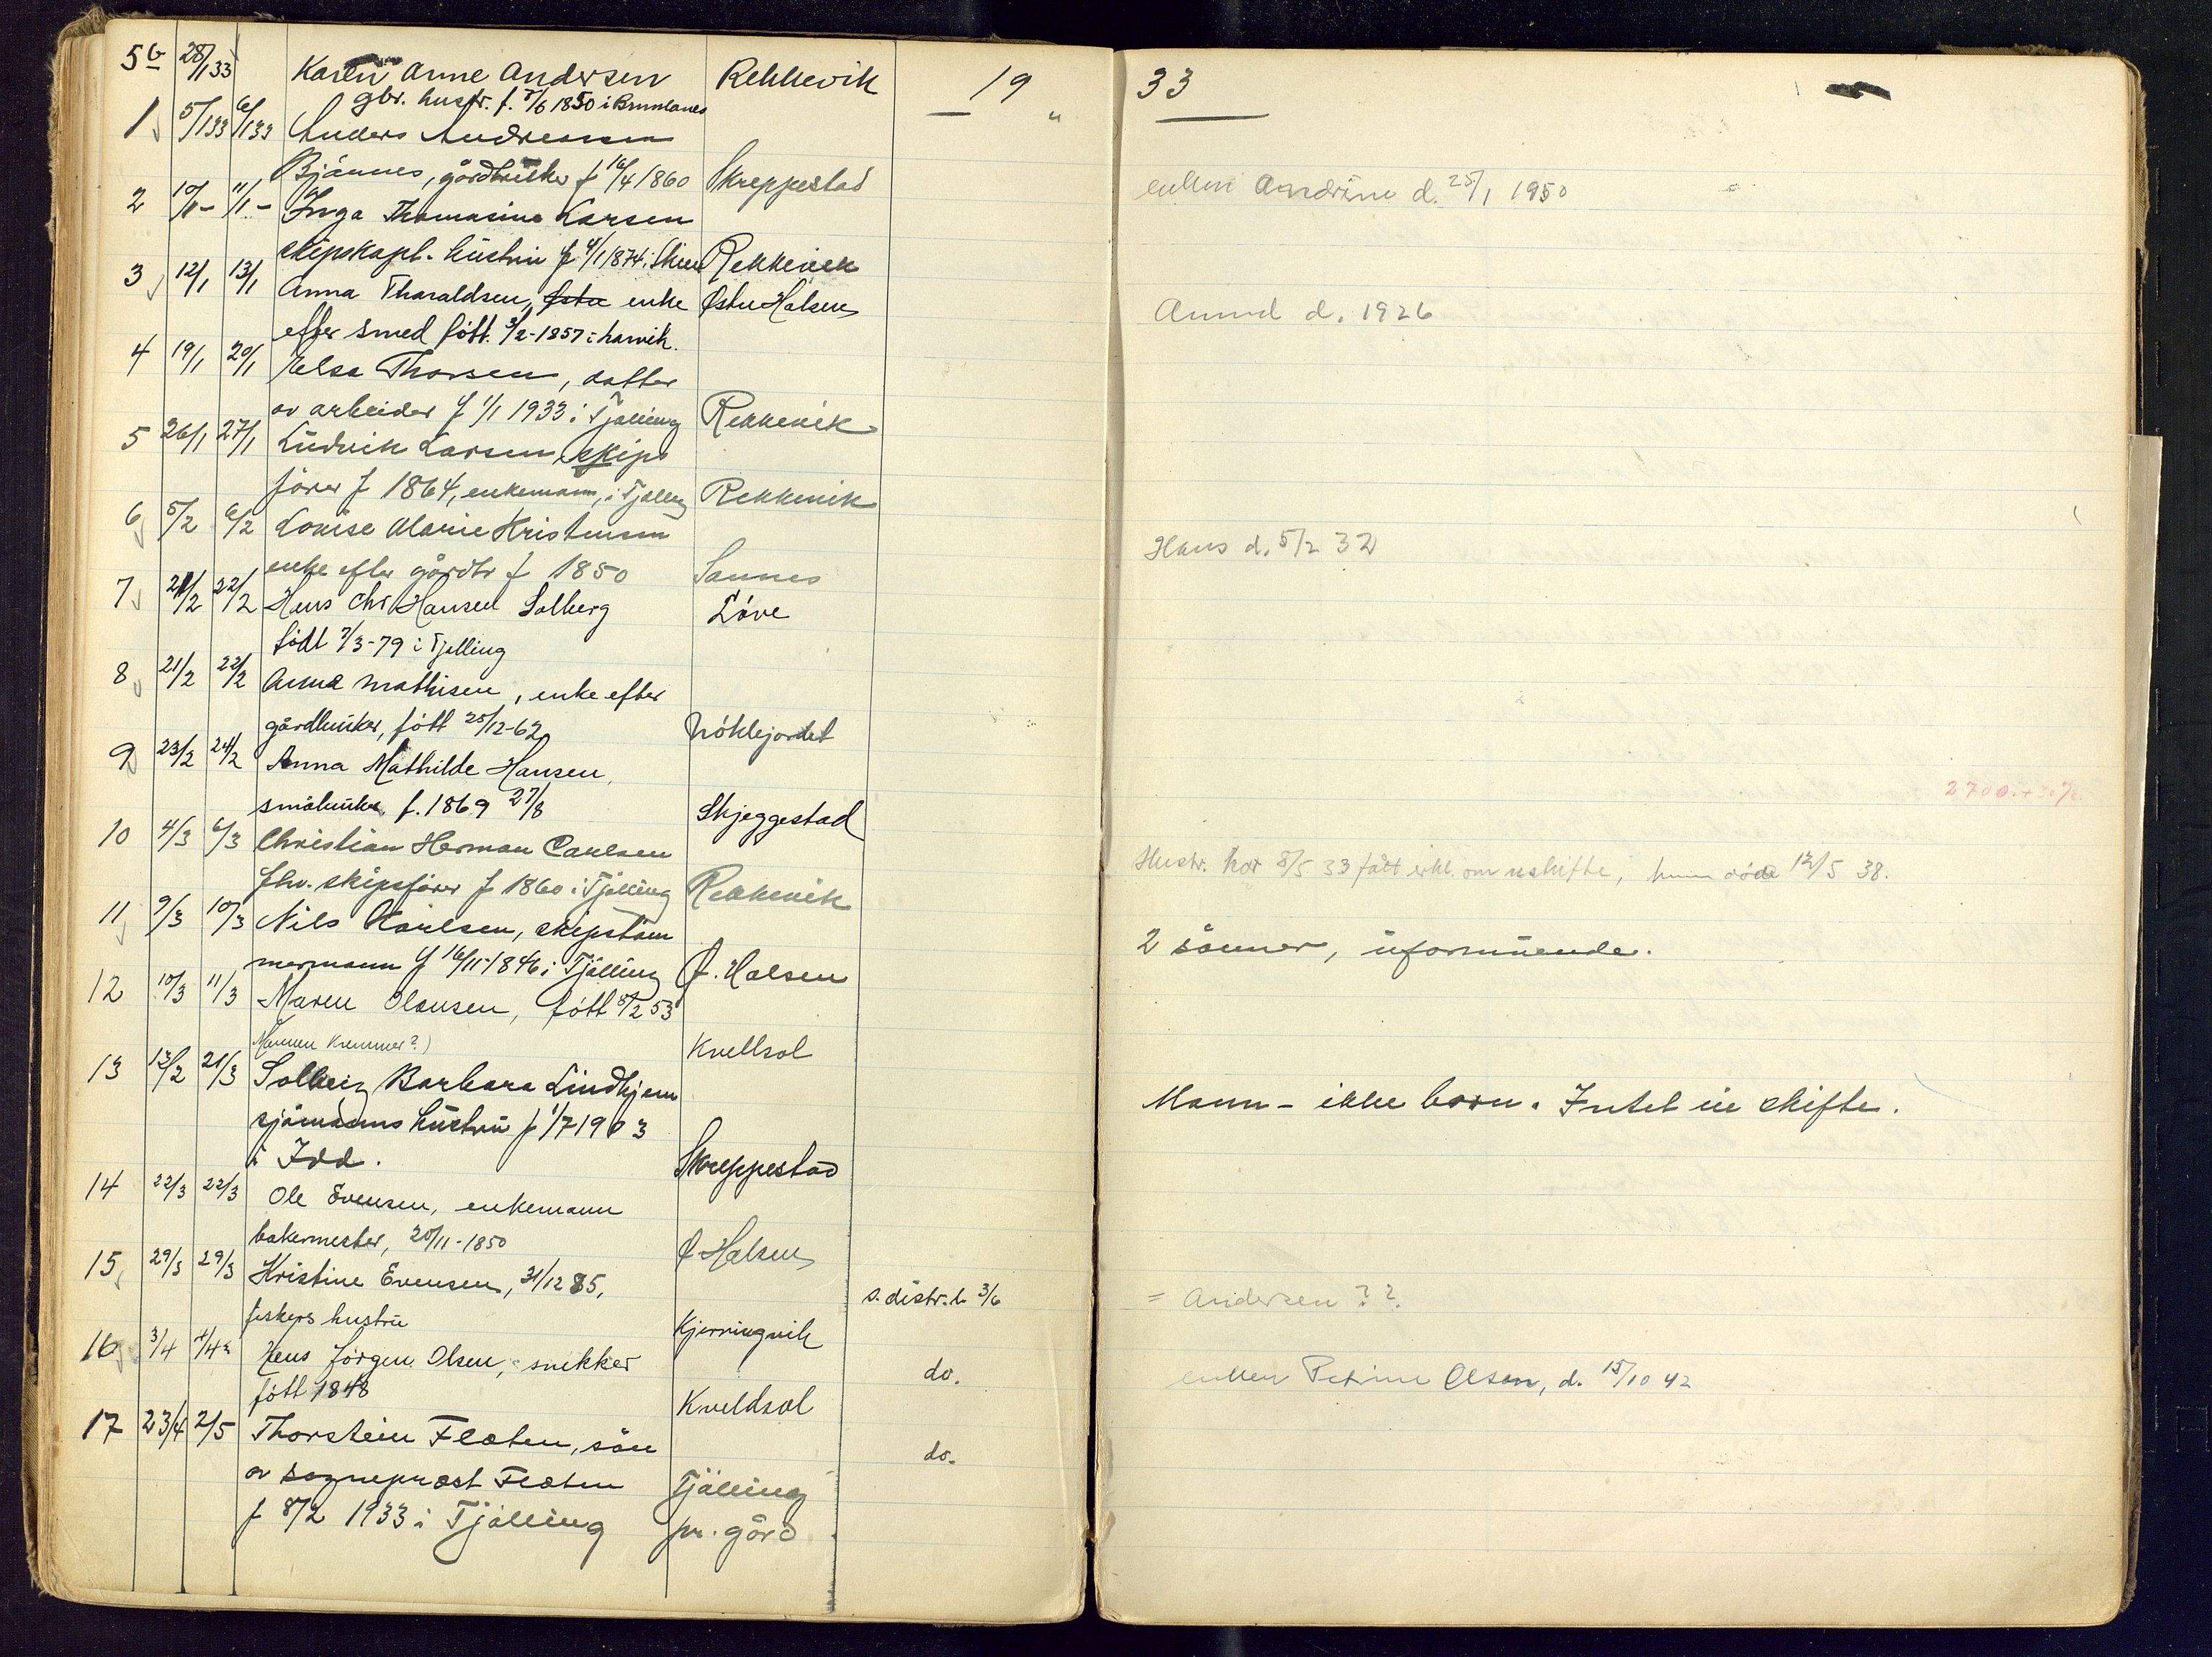 19 33
5b 28/1 33 Karen Anne Andersen Rekkevik
gbr. hustr. f. 7/6 1850 i Brunlanes
1 5/1 33 6/1 33 Anders Andreassen
Bjånnes, gårdbruker f 16/4 1860 Skreppestad
enken Andrine d. 25/1 1950
2 10/1 - 11/1 - Inga Thomasine Larsen
skipskapt. hustru f 4/1 1874 i Skien Rekkevik
3 12/1 13/1 Anna Tharaldsen, enke Østre Halsen
Amund d. 1926
efter smed fött. 3/2-1857 i Larvik.
4 19/1 20/1 Elsa Thorsen, datter
av arbeider f 1/1 1933 i Tjölling Rekkevik
5 26/1 27/1 Ludvik Larsen, skips
förer f 1864, enkemann, i Tjölling Rekkevik
6 5/2 6/2 Lovise Marie Kristensen
Hans d. 5/2 32
enke efter gårdbr f 1850 Sannes
7 21/2 22/2 Hans Chr Hansen Solberg Löve
födt 7/3-79 i Tjölling
8 21/2 22/2 Anna Mathisen, enke efter
gårdbruker, fött 25/12-62 Nöklejordet
9 23/2 24/2 Anna Mathilde Hansen,
småbruker, f. 1869 27/8 Skjeggestad
10 4/3 6/3 Christian Herman Carlsen
fhv. skipsförer f 1860 i Tjölling Rekkevik
Hustr. har 8/5 33 fått erkl. om uskifte, hun döde 12/5 38.
11 9/3 10/3 Nils Karlsen, skipstöm
2 sönner, uformuende.
mermann f 16/11-1846 i Tjölling Ø. Halsen
12 10/3 11/3 Maren Olausen, fött 8/2 53
Mannen Kremmer?) Kvellsol
13 12/2 21/3 Solveig Barbara Lindhjem
Mann - ikke barn. Intet iu skifte.
sjömanns hustru f 1/7 1903
i Idd. Skreppestad
14 22/3 22/3 Ole Evensen, enkemann
bakermester, 20/11-1850 Ø Halsen
15 29/3 29/3 Kristine Evensen, 31/12 85, s. distr. l. 3/6
= Andersen ??
fiskers hustru Kjerringvik
16 3/4 4/4 Hans Jörgen Olsen, snikker do.
enken Petrine Olsen, d. 15/10 42
fött 1848 Kveldsol
17 23/4 2/5 Thorstein Flæten, sön do.
av sogneprest Flæten Tjölling
f 8/2 1933 i Tjölling pr. gård